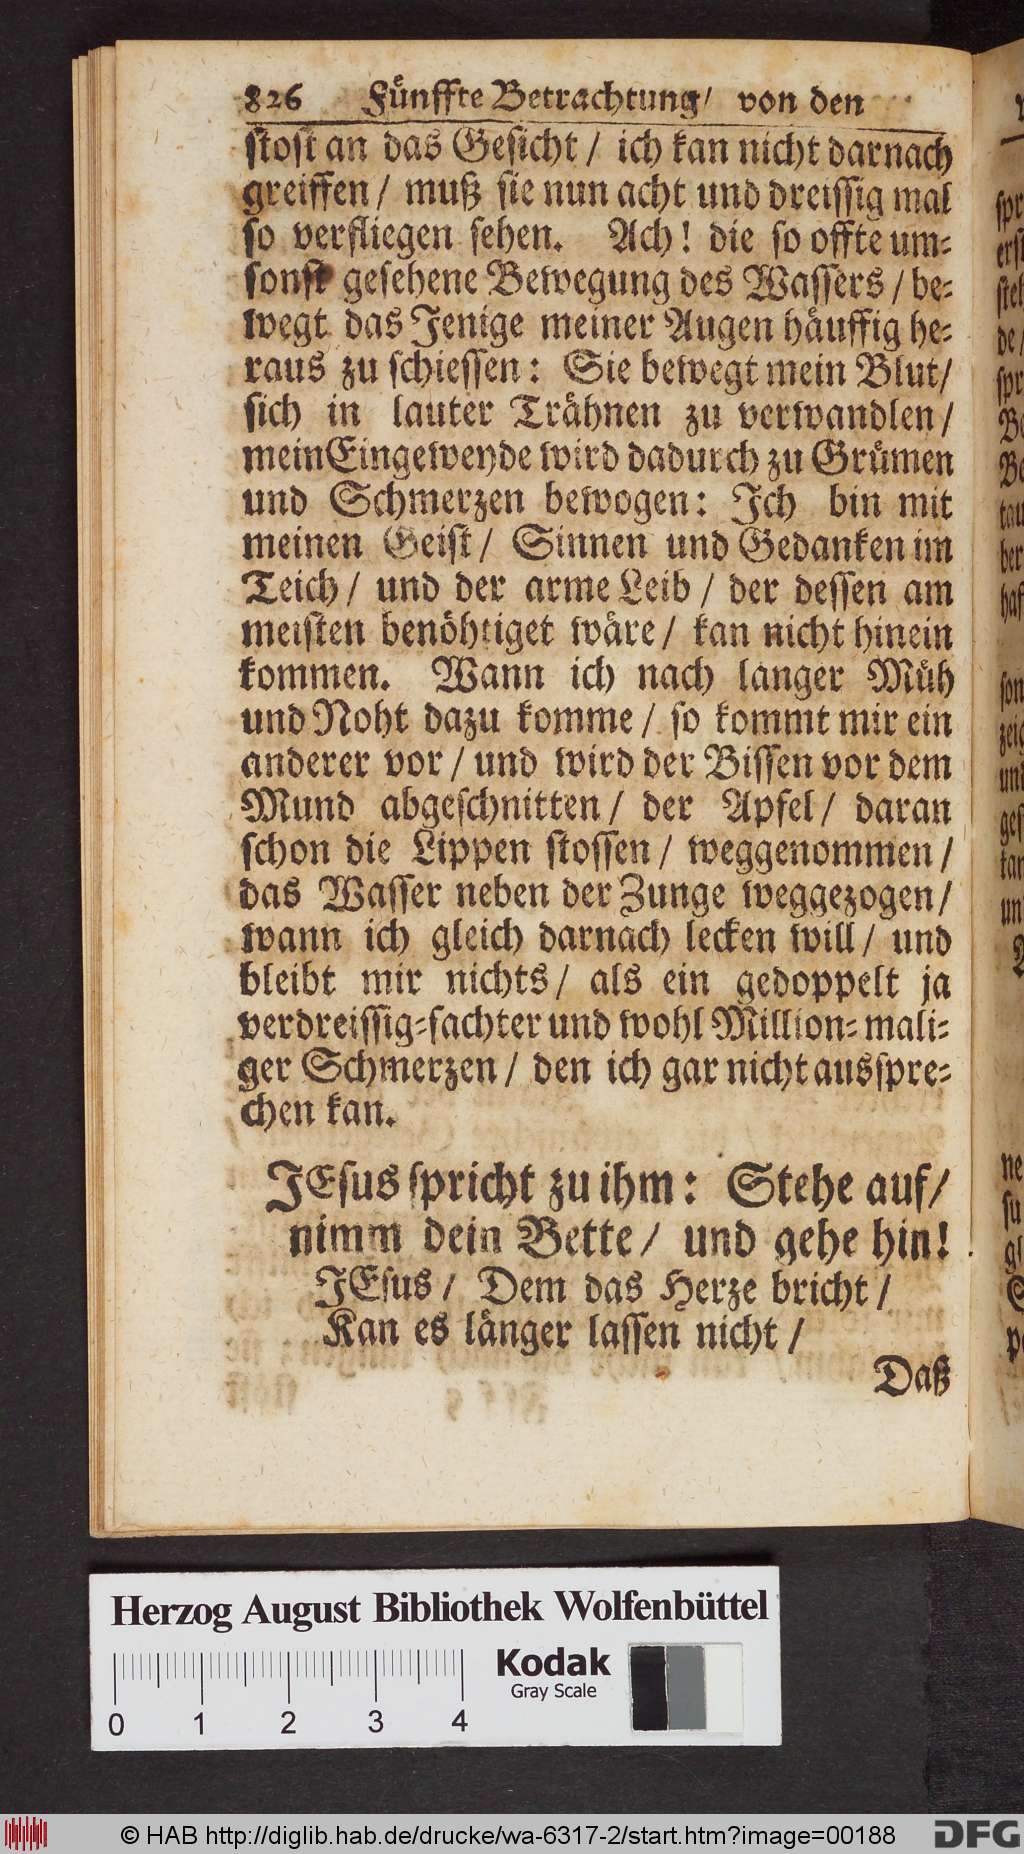 826 Fünffte Betrachtung/ von den
stost an das Gesicht / ich kan nicht darnach
greiffen / muß sie nun acht und dreissig mal
so verfliegen sehen. Ach! die so offte um-
sonst gesehene Bewegung des Wassers / be-
wegt das Jenige meiner Augen häuffig he-
raus zu schiessen: Sie bewegt mein Blut/
sich in lauter Trähnen zu verwandlen /
mein Eingeweyde wird dadurch zu Grümen
und Schmerzen bewogen: Ich bin mit
meinen Geist / Sinnen und Gedanken im
Teich / und der arme Leib / der dessen am
meisten benöhtiget wäre / kan nicht hinein
kommen. Wann ich nach langer Müh
und Noht dazu komme / so kommt mir ein
anderer vor / und wird der Bissen vor dem
Mund abgeschnitten / der Apfel / daran
schon die Lippen stossen / weggenommen /
das Wasser neben der Zunge weggezogen /
wann ich gleich darnach lecken will / und
bleibt mir nichts / als ein gedoppelt ja
verdreissig-fachter und wohl Million-mali-
ger Schmerzen / den ich gar nicht ausspre-
chen kan.
JEsus spricht zu ihm: Stehe auf/
nimm dein Bette / und gehe hin!
JEsus / Dem das Herze bricht /
Kan es länger lassen nicht /
Daß
Herzog August Bibliothek Wolfenbüttel
Kodak
Gray Scale
0 1 2 3 4
© HAB http://diglib.hab.de/drucke/wa-6317-2/start.htm?image=00188
DFG